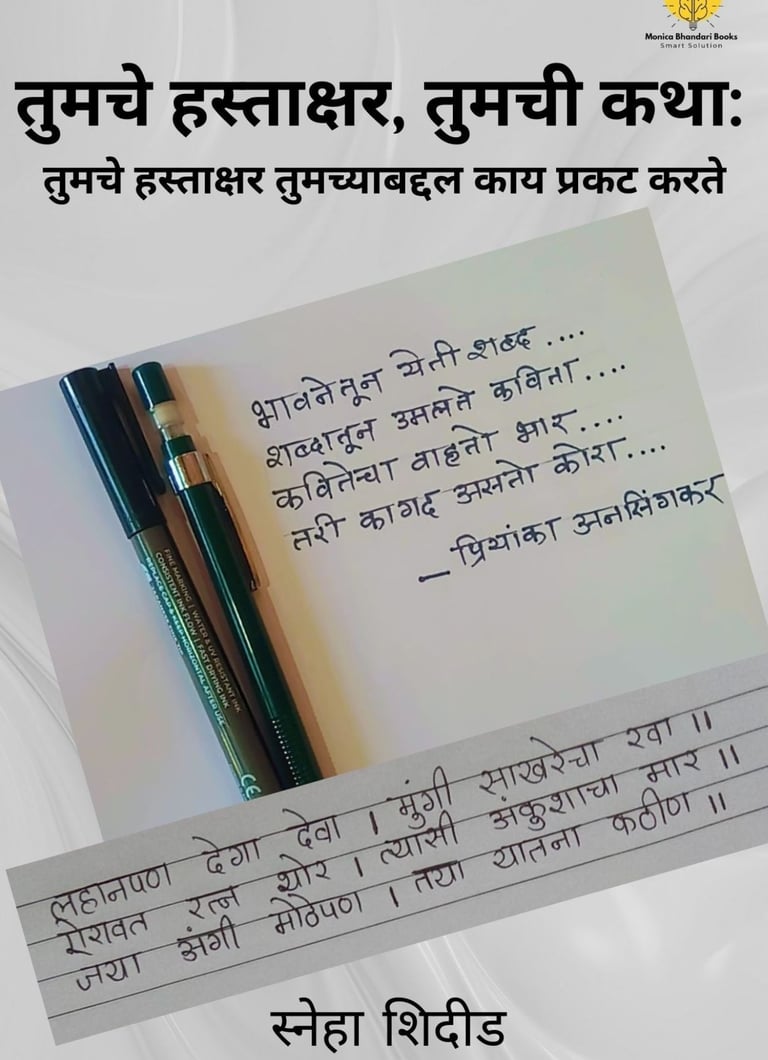 Monica Bhandari Books
Smart Solution
तुमचे हस्ताक्षर, तुमची कथा:
तुमचे हस्ताक्षर तुमच्याबद्दल काय प्रकट करते
भावनेतून येती शब्द ....
शब्दातून उमलते कविता ....
कवितेचा वाहतो भार ....
तरी कागद असतो कोरा ....
_ प्रियांका अनसिंगकर
FINE MARKING | WATER & UV RESISTANT INK
CONSISTENT INK FLOW | FAST DRYING INK
REPLACE CAP & KEEP HORIZONTAL AFTER USE
CE
लहानपण देगा देवा । मुंगी साखरेचा रवा ॥
ऐरावत रत्न थोर । त्यासी अंकुशाचा मार ॥
जया अंगी मोठेपण । तया यातना कठीण ॥
स्नेहा शिदीड